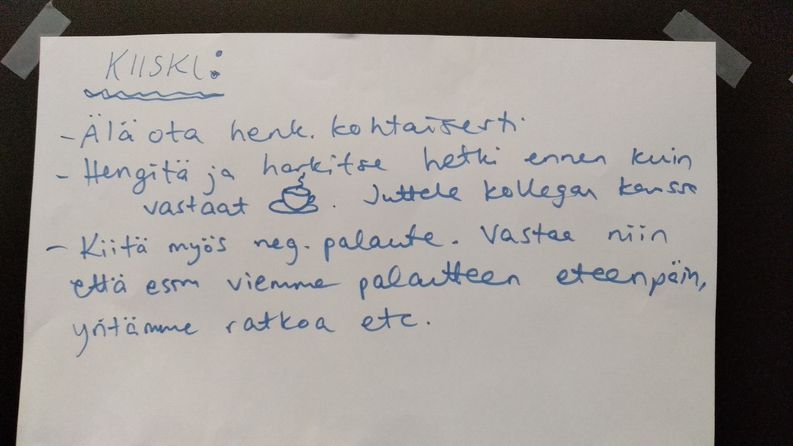 KIISKI:
- Älä ota henk. kohtaisesti
- Hengitä ja harkitse hetki ennen kuin
vastaat . Juttele kollegan kanssa
- Kiitä myös neg. palaute. Vastaa niin
että esm viemme palautteen eteenpäin,
yritämme ratkoa etc.